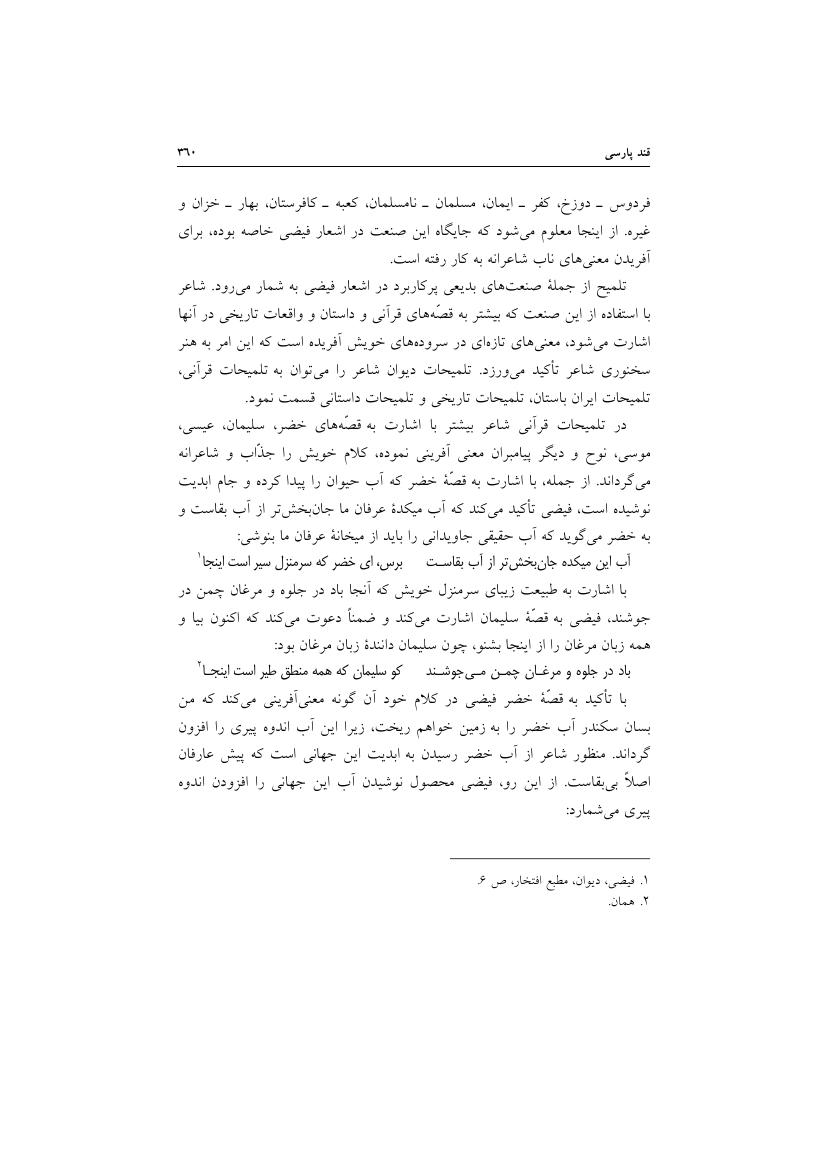 قند پارسی ۳۶۰
فردوس ـ دوزخ، کفر ـ ایمان، مسلمان ـ نامسلمان، کعبه ـ کافرستان، بهار ـ خزان و
غیره. از اینجا معلوم می‌شود که جایگاه این صنعت در اشعار فیضی خاصه بوده، برای
آفریدن معنی‌های ناب شاعرانه به کار رفته است.
تلمیح از جملهٔ صنعت‌های بدیعی پرکاربرد در اشعار فیضی به شمار می‌رود. شاعر
با استفاده از این صنعت که بیشتر به قصّه‌های قرآنی و داستان و واقعات تاریخی در آنها
اشارت می‌شود، معنی‌های تازه‌ای در سروده‌های خویش آفریده است که این امر به هنر
سخنوری شاعر تأکید می‌ورزد. تلمیحات دیوان شاعر را می‌توان به تلمیحات قرآنی،
تلمیحات ایران باستان، تلمیحات تاریخی و تلمیحات داستانی قسمت نمود.
در تلمیحات قرآنی شاعر بیشتر با اشارت به قصّه‌های خضر، سلیمان، عیسی،
موسی، نوح و دیگر پیامبران معنی آفرینی نموده، کلام خویش را جذّاب و شاعرانه
می‌گرداند. از جمله، با اشارت به قصّهٔ خضر که آب حیوان را پیدا کرده و جام ابدیت
نوشیده است، فیضی تأکید می‌کند که آب میکدهٔ عرفان ما جان‌بخش‌تر از آب بقاست و
به خضر می‌گوید که آب حقیقی جاویدانی را باید از میخانهٔ عرفان ما بنوشی:
آب این میکده جان‌بخش‌تر از آب بقاست برس، ای خضر که سرمنزل سیر است اینجا۱
با اشارت به طبیعت زیبای سرمنزل خویش که آنجا باد در جلوه و مرغان چمن در
جوشند، فیضی به قصّهٔ سلیمان اشارت می‌کند و ضمناً دعوت می‌کند که اکنون بیا و
همه زبان مرغان را از اینجا بشنو، چون سلیمان دانندهٔ زبان مرغان بود:
باد در جلوه و مرغـان چمـن مـی‌جوشـند کو سلیمان که همه منطق طیر است اینجـا۲
با تأکید به قصّهٔ خضر فیضی در کلام خود آن گونه معنی‌آفرینی می‌کند که من
بسان سکندر آب خضر را به زمین خواهم ریخت، زیرا این آب اندوه پیری را افزون
گرداند. منظور شاعر از آب خضر رسیدن به ابدیت این جهانی است که پیش عارفان
اصلاً بی‌بقاست. از این رو، فیضی محصول نوشیدن آب این جهانی را افزودن اندوه
پیری می‌شمارد:
۱. فیضی، دیوان، مطبع افتخار، ص ۶.
۲. همان.